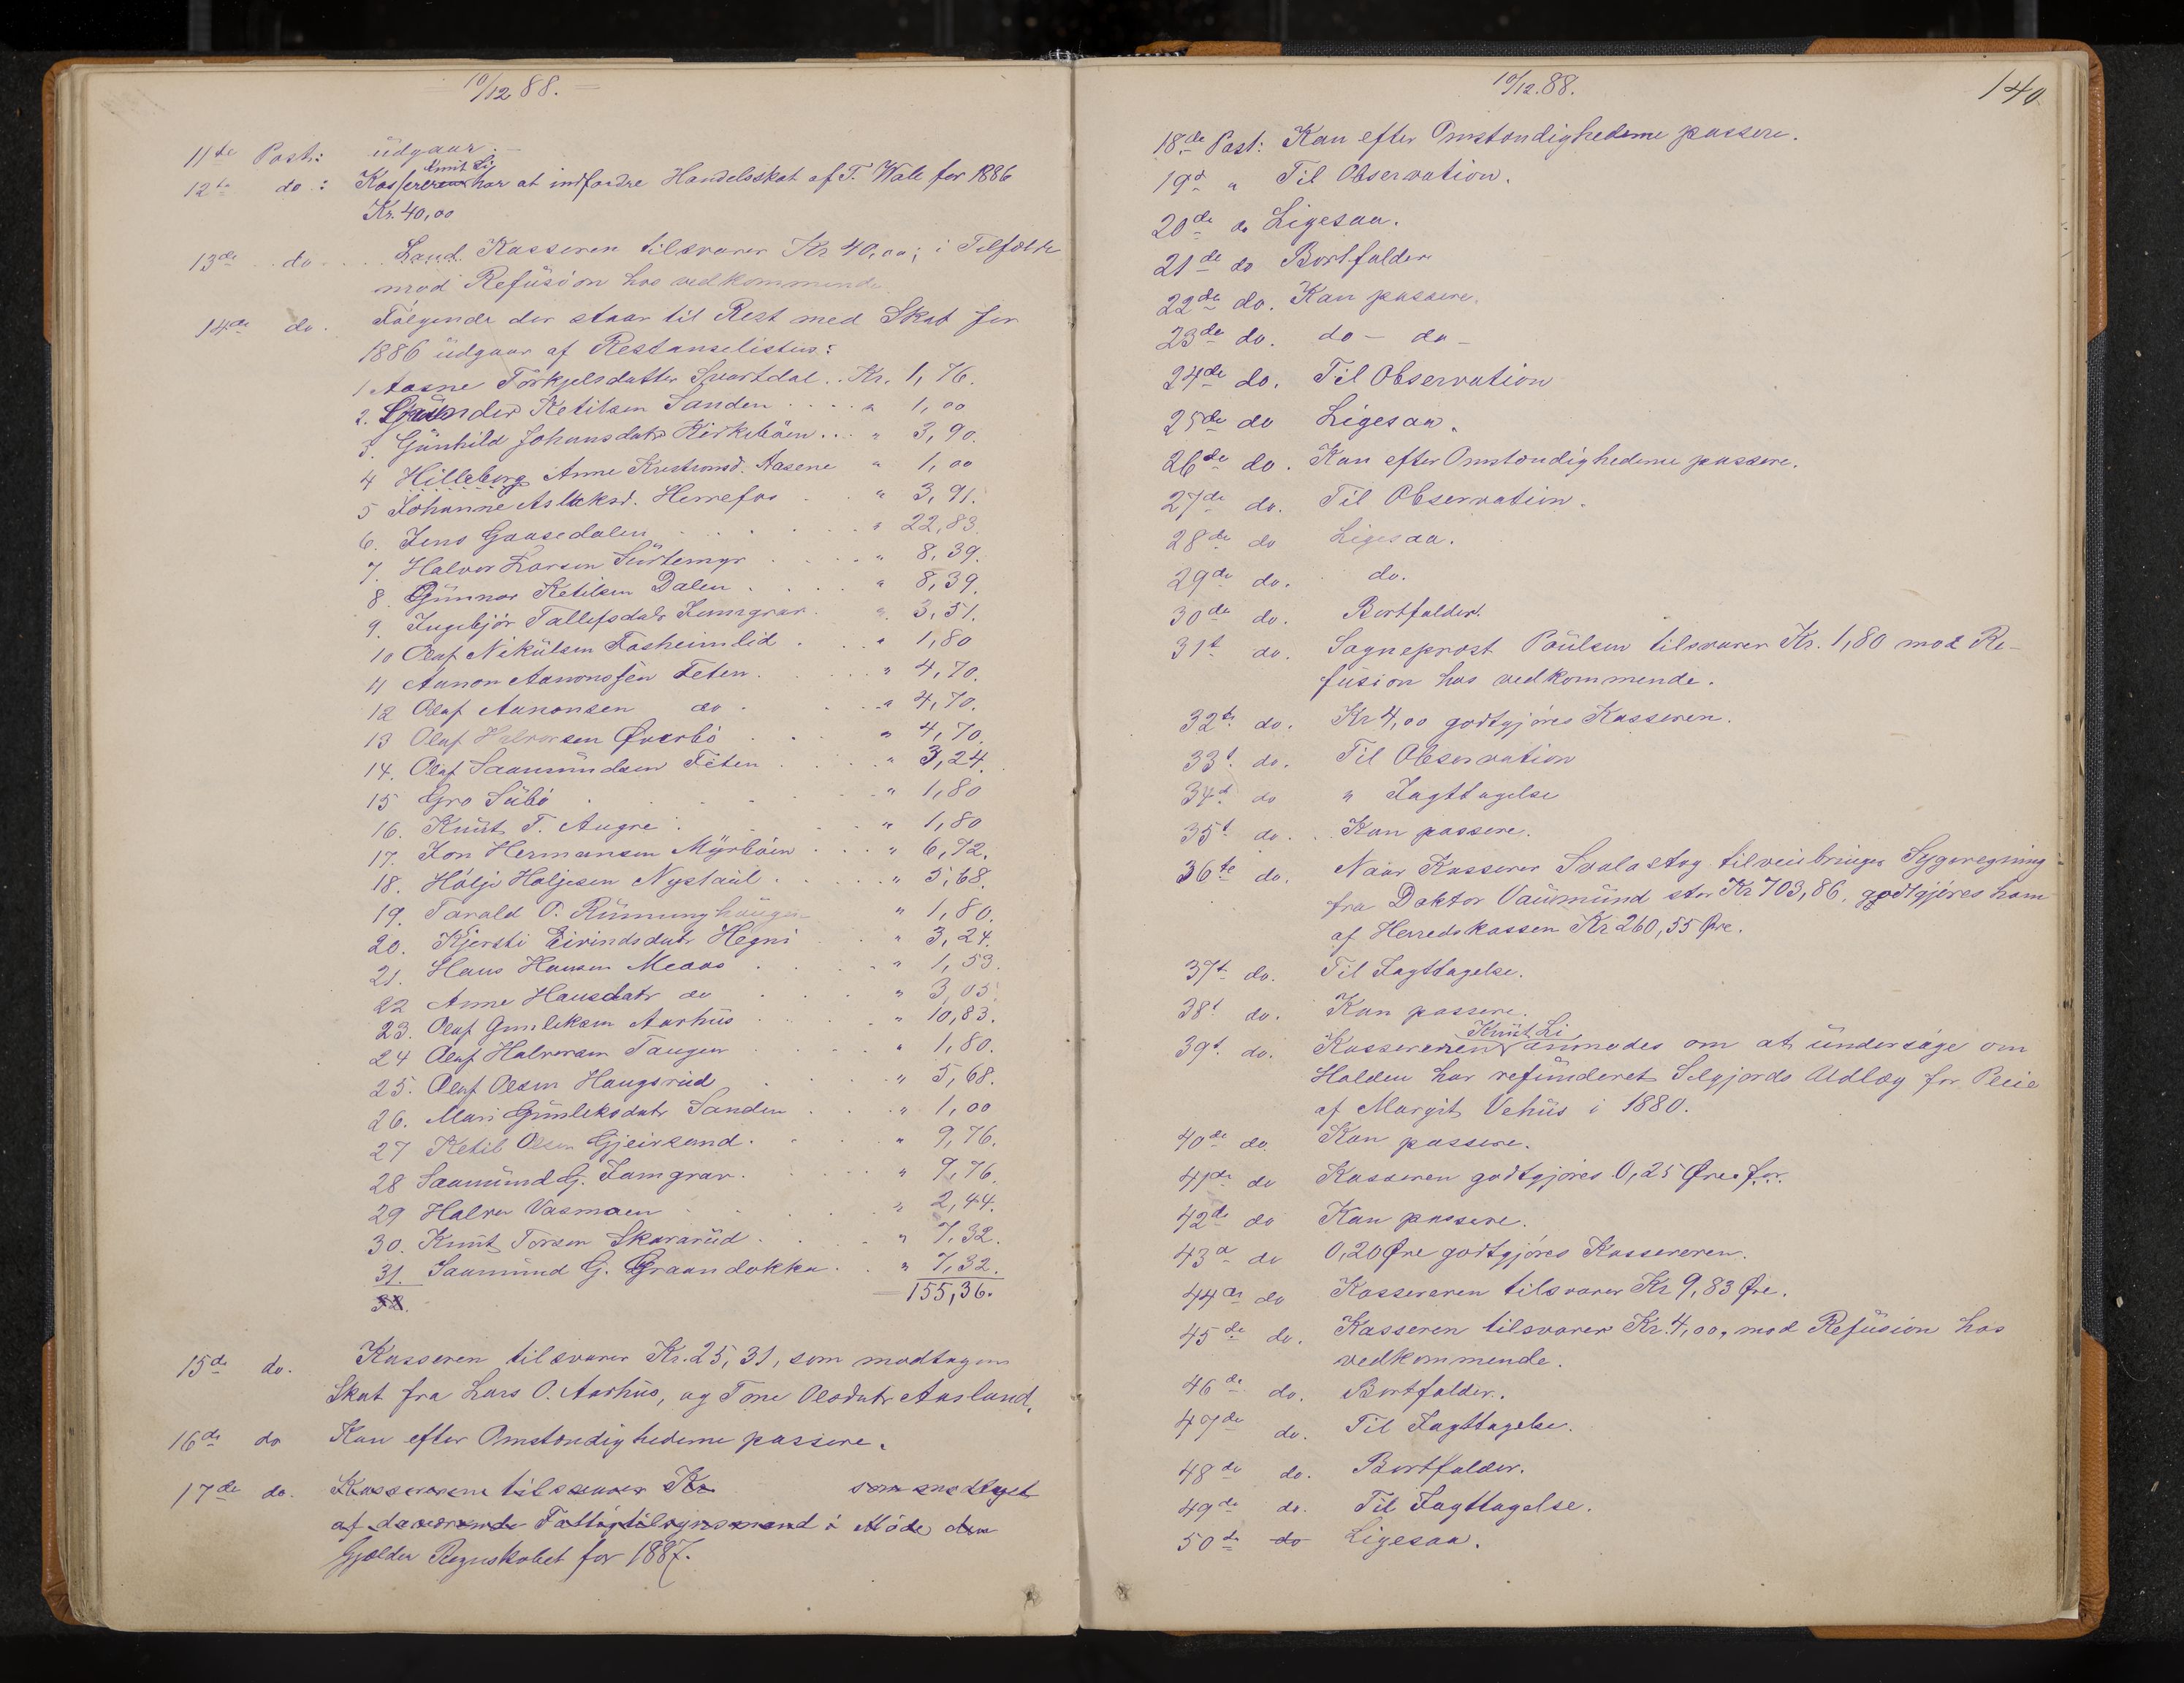 10/12 88.
11te Post: udgaar. —
Knut Li
12te do: Kassereren har at indfordre Handelsskat af T. Wale for 1886
Kr. 40,00
13de do Land. Kasseren tilsvarer Kr 40,00; i Tilfælde
mod Refusion hos vedkommende.
14de do. Følgende der staar til Rest med Skat for
1886 udgaar af Restanselisten:
1 Aasne Torkjelsdatter Svartdal .. Kr. 1,76.
2. Gunder Ketilsen Sanden .... " 1,00
3. Gunhild Johansdatr Kirkebøen ... " 3,90.
4 Hilleborg Anne Kristiansd. Aasene " 1,00
5 Johanne Aslaksd. Herrefos .. " 3,91.
6. Jens Gaasedalen .... " 22,83.
7. Halvor Larsen Surtemyr .... " 8,39.
8. Gunnar Ketilsen Dalen .... " 8,39.
9. Ingebjør Tallefsdatr Jamgrav. " 3,51.
10 Olaf Nikulsen Fosheimlid .. " 1,80
11 Aanon Aanonsen Teten .... " 4,70.
12 Olaf Aanonsen do ... " 4,70.
13 Olaf Halvorsen Øverbø ... " 4,70.
14. Olaf Saamundsen Teten .... " 3,24.
15 Gro Subø .... " 1,80
16. Knut T. Augre .... " 1,80
17. Jon Hermansen Myrbøen ... " 6,72.
18. Hølje Holjesen Nystaul .... " 5,68.
19. Tarald O. Rumunghaugen " 1,80.
20. Kjersti Eivindsdatr Hegni .. " 3,24.
21. Hans Hansen Meaas .... " 1,53.
22 Anne Hansdatr do ... " 3,05.
23. Olaf Gunleksen Aarhus .... " 10,83.
24 Olaf Halvorsen Taugen .. " 1,80.
25. Olaf Olsen Haugsrud .... " 5,68.
26. Mari Gunleksdatr Sanden ... " 1,00
27 Ketil Olsen Gjeirsand ... " 9,76.
28 Saamund G. Jamgrav .... " 9,76.
29 Halvor Vasmoen .... " 2,44.
30. Knut Torsen Skararud .... " 7,32.
31. Saamund G. Graandokka .. " 7,32.
32. 155,36.
15de do. Kasseren tilsvarer Kr. 25,31, som modtagen
Skat fra Lars O. Aarhus, og Tone Olsdatr Aasland.
16de do Kan efter Omstændighederne passere.
17de do. Kassereren tilsvarer Kr som modtaget
af daværende Fattigtilsynsmand i Møde den
Gjælder Regnskabet for 1887.
10/12.88.
140.
18.de Post: Kan efter Omstændighederne passere.
19d " Til Observation.
20de do Ligesaa.
21de do Bortfalder
22de do. Kan passere.
23de do. do — do —
24de do. Til Observation
25de do Ligesaa.
26de do. Kan efter Omstændighederne passere.
27de do. Til Observation.
28de do Ligesaa.
29de do. do.
30de do. Bortfalder.
31t do. Sogneprost Poulsen tilsvarer Kr. 1,80 mod Re-
fusion hos vedkommende.
32te do. Kr 4,00 godtgjøres Kasseren.
33t do. Til Observation
34d do " Iagttagelse
35t do. Kan passere.
36te do. Naar Kasserer Svalastog tilveiebringer Sygeregning
fra Doktor Vaumund stor Kr 703,86, godtgjøres ham
af Herredskassen Kr 260,55 Øre.
37t do. Til Iagttagelse.
38t do. Kan passere.
Knut Li
39t do. Kassereren anmodes om at undersøge om
Holden har refunderet Selgjords Udlæg for Pleie
af Margit Vehus i 1880.
40de do. Kan passere.
41de do Kasseren godtgjøres 0,25 Øre. for.
42de do Kan passere.
43d do 0,20 Øre godtgjøres Kassereren.
44de do Kassereren tilsvarer Kr 9,83 Øre.
45de do. Kasseren tilsvarer Kr. 4,00, mod Refusion hos
vedkommende.
46de do. Bortfalder.
47de do. Til Iagttagelse.
48de do. Bortfalder.
49de do. Til Iagttagelse.
50de do Ligesaa.